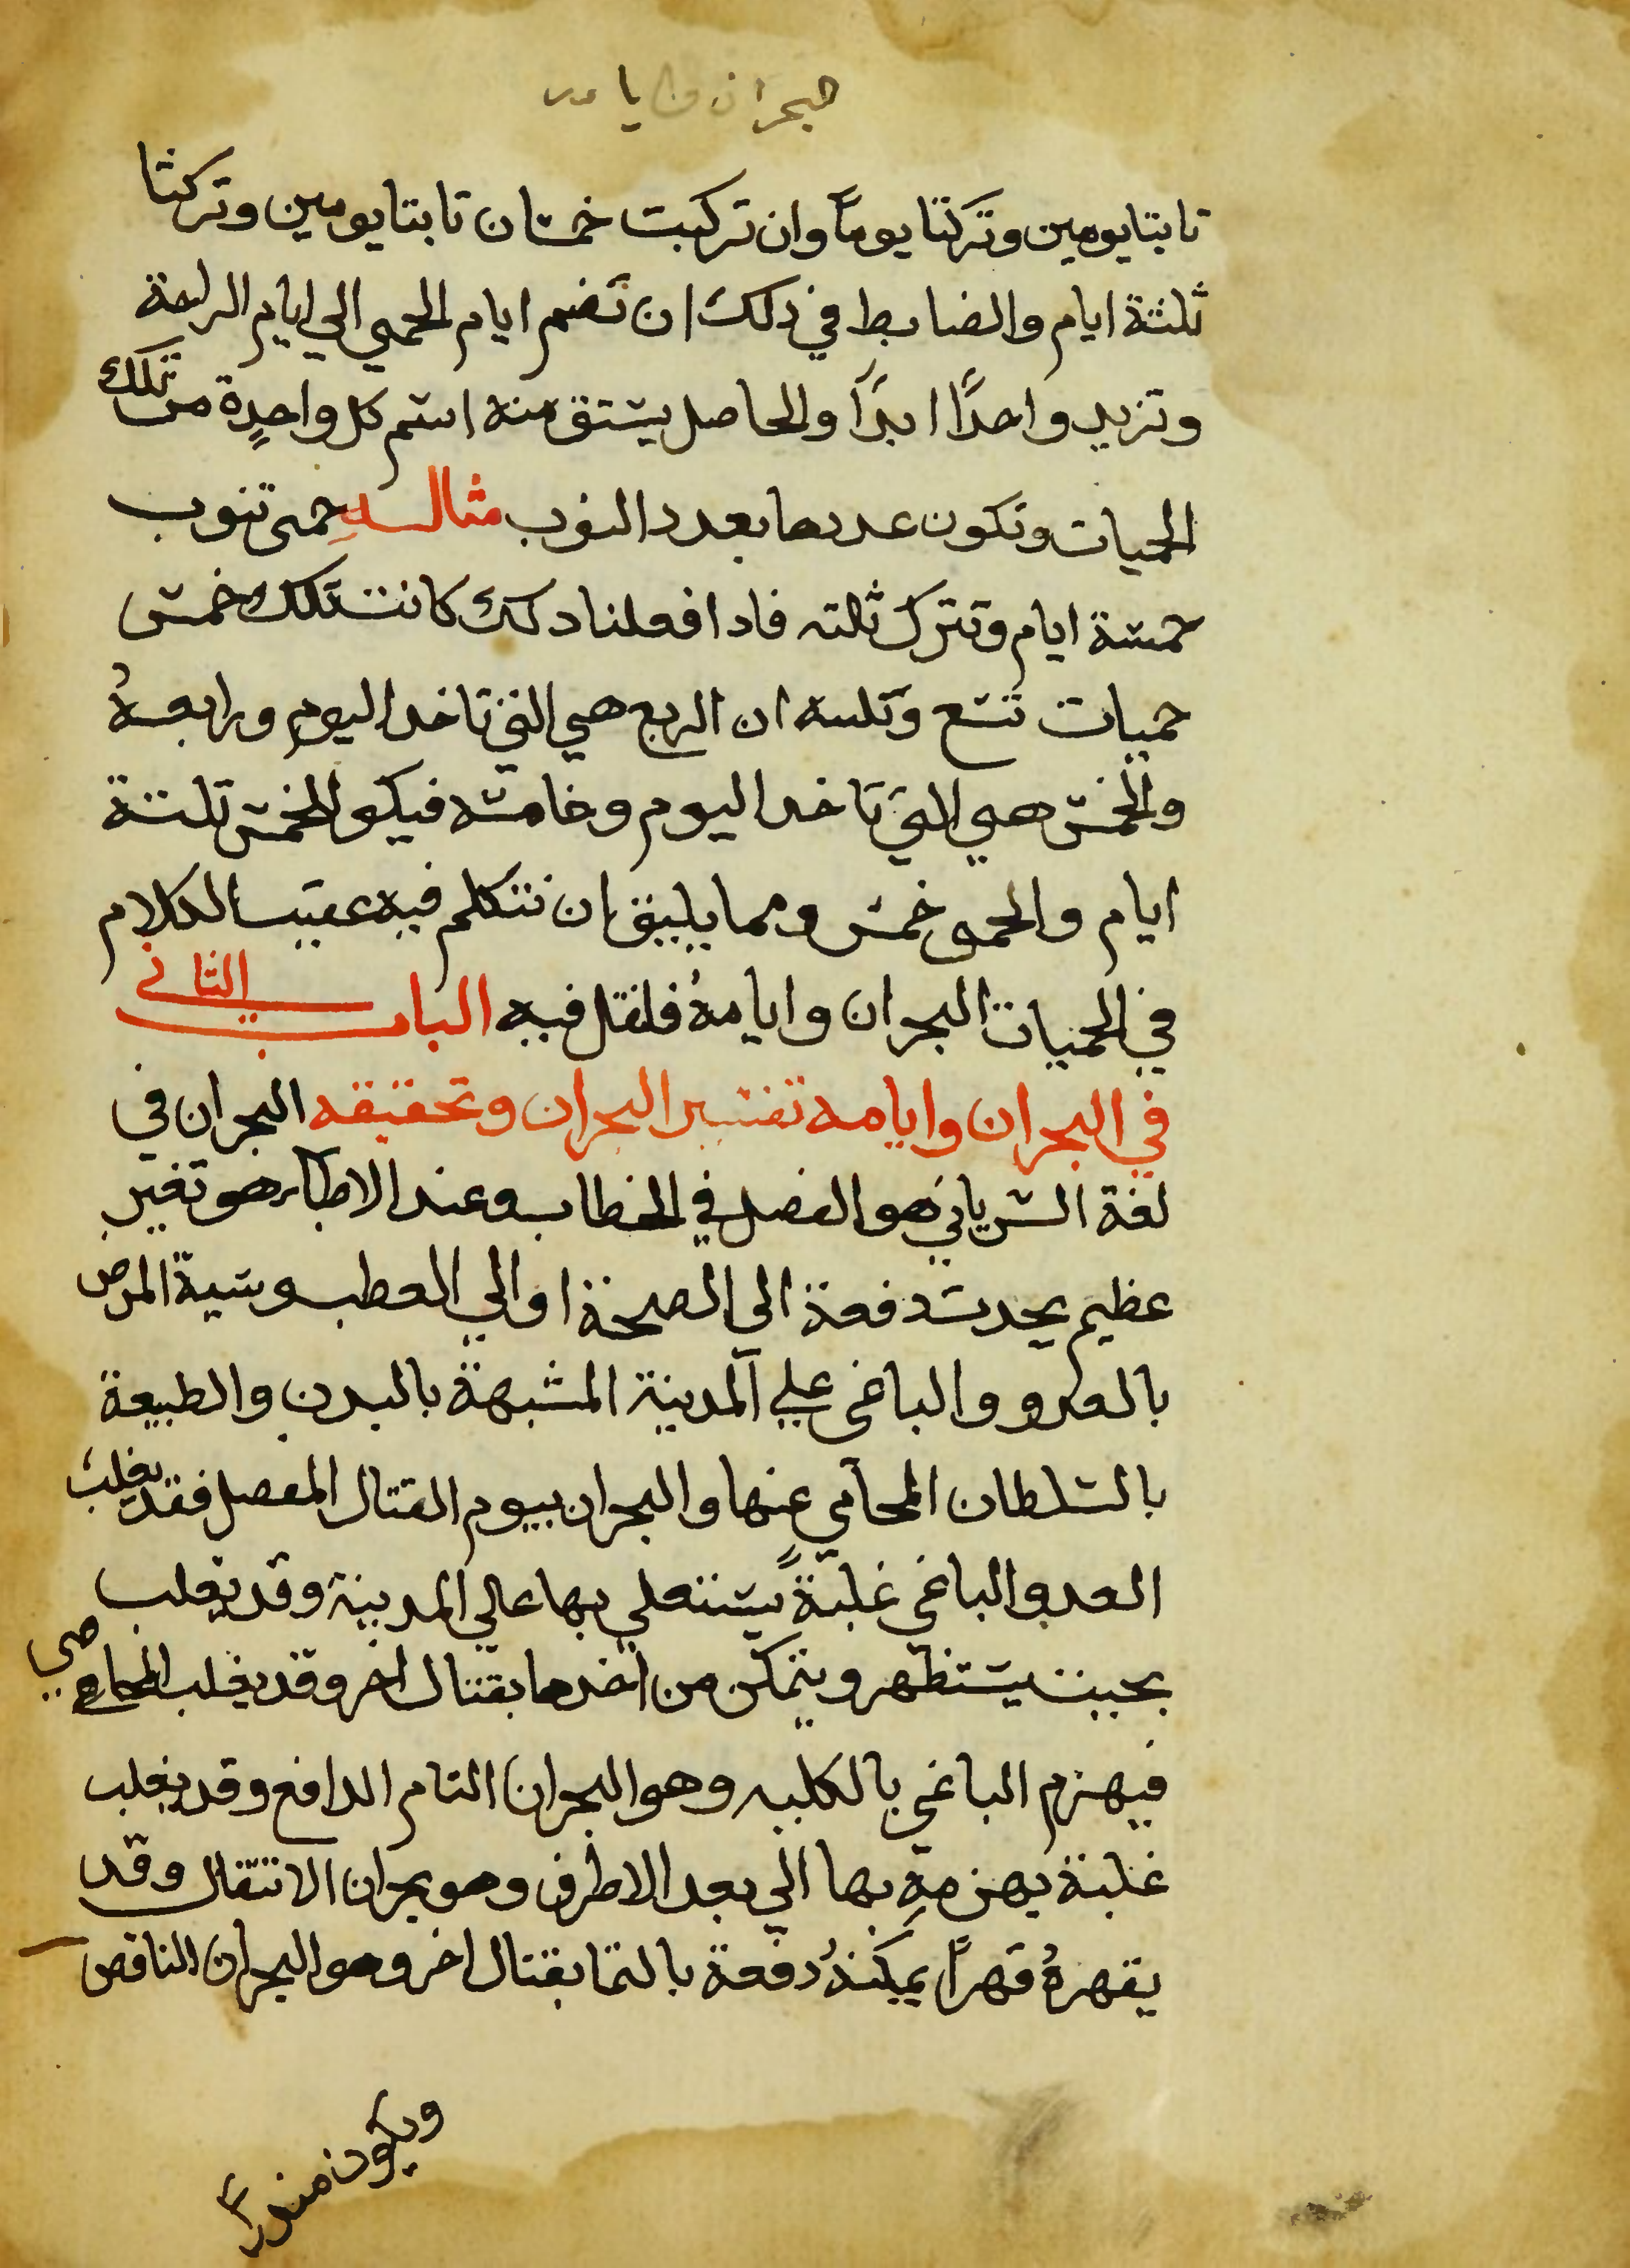 البحران وايامه
نابتا يومين وتركتا يوماً وان تركبت خمسان نابتا يومين وتركتا
ثلثة ايام والضابط في ذلك ان تضم ايام الحمي الي ايام الراحة
وتزيد واحدًا ابدًا والحاصل يشتق منه اسم كل واحدةٍ من تلك
الحميات وتكون عددها بعدد النوب مثاله حمى تنوب
خمسة ايام وتترك ثلثه فاذا فعلنا ذلك كانت تلك خمس
حميات تسع وتلسه ان الربع هي التي تاخد اليوم ورابعهُ
والخمس هي التي تاخد اليوم وخامسه فيكو الخمس تلتة
ايام والحمى خمس ومما يليق ان نتكلم فيه عقيب الكلام
في الحميات البحران وايامهُ فلنقل فيه الباب الثاني
في البحران وايامه تفسير البحران وتحقيقه البحران في
لغة السرياني هو الفصل في الخطاب وعند الاطبآء هو تغير
عظيم يحدث دفعة الى الصحة او الي العطب وشبة المرض
بالعدو والباغى علي المدينة المشبهة بالبدن والطبيعة
بالسلطان المحامي عنها والبحران بيوم القتال المفصل فقد يغلب
العدو الباغي غلبةً يستعلي بها عالي المدينة وقد يغلب
بحيث يستظهر ويتمكن من اخدها بقتال اخر وقد يغلب المحامي
فيهزم الباغي بالكليه وهو البحران التام الدافع وقد يغلب
غلبة يهزمهِ بها الي بعد الاطرف وهو بحران الانتقال وقد
يقهرهُ قهرًا يمكنهُ دفعة بالتما بقتال اخر وهو البحران الناقص
ويكون منذرا